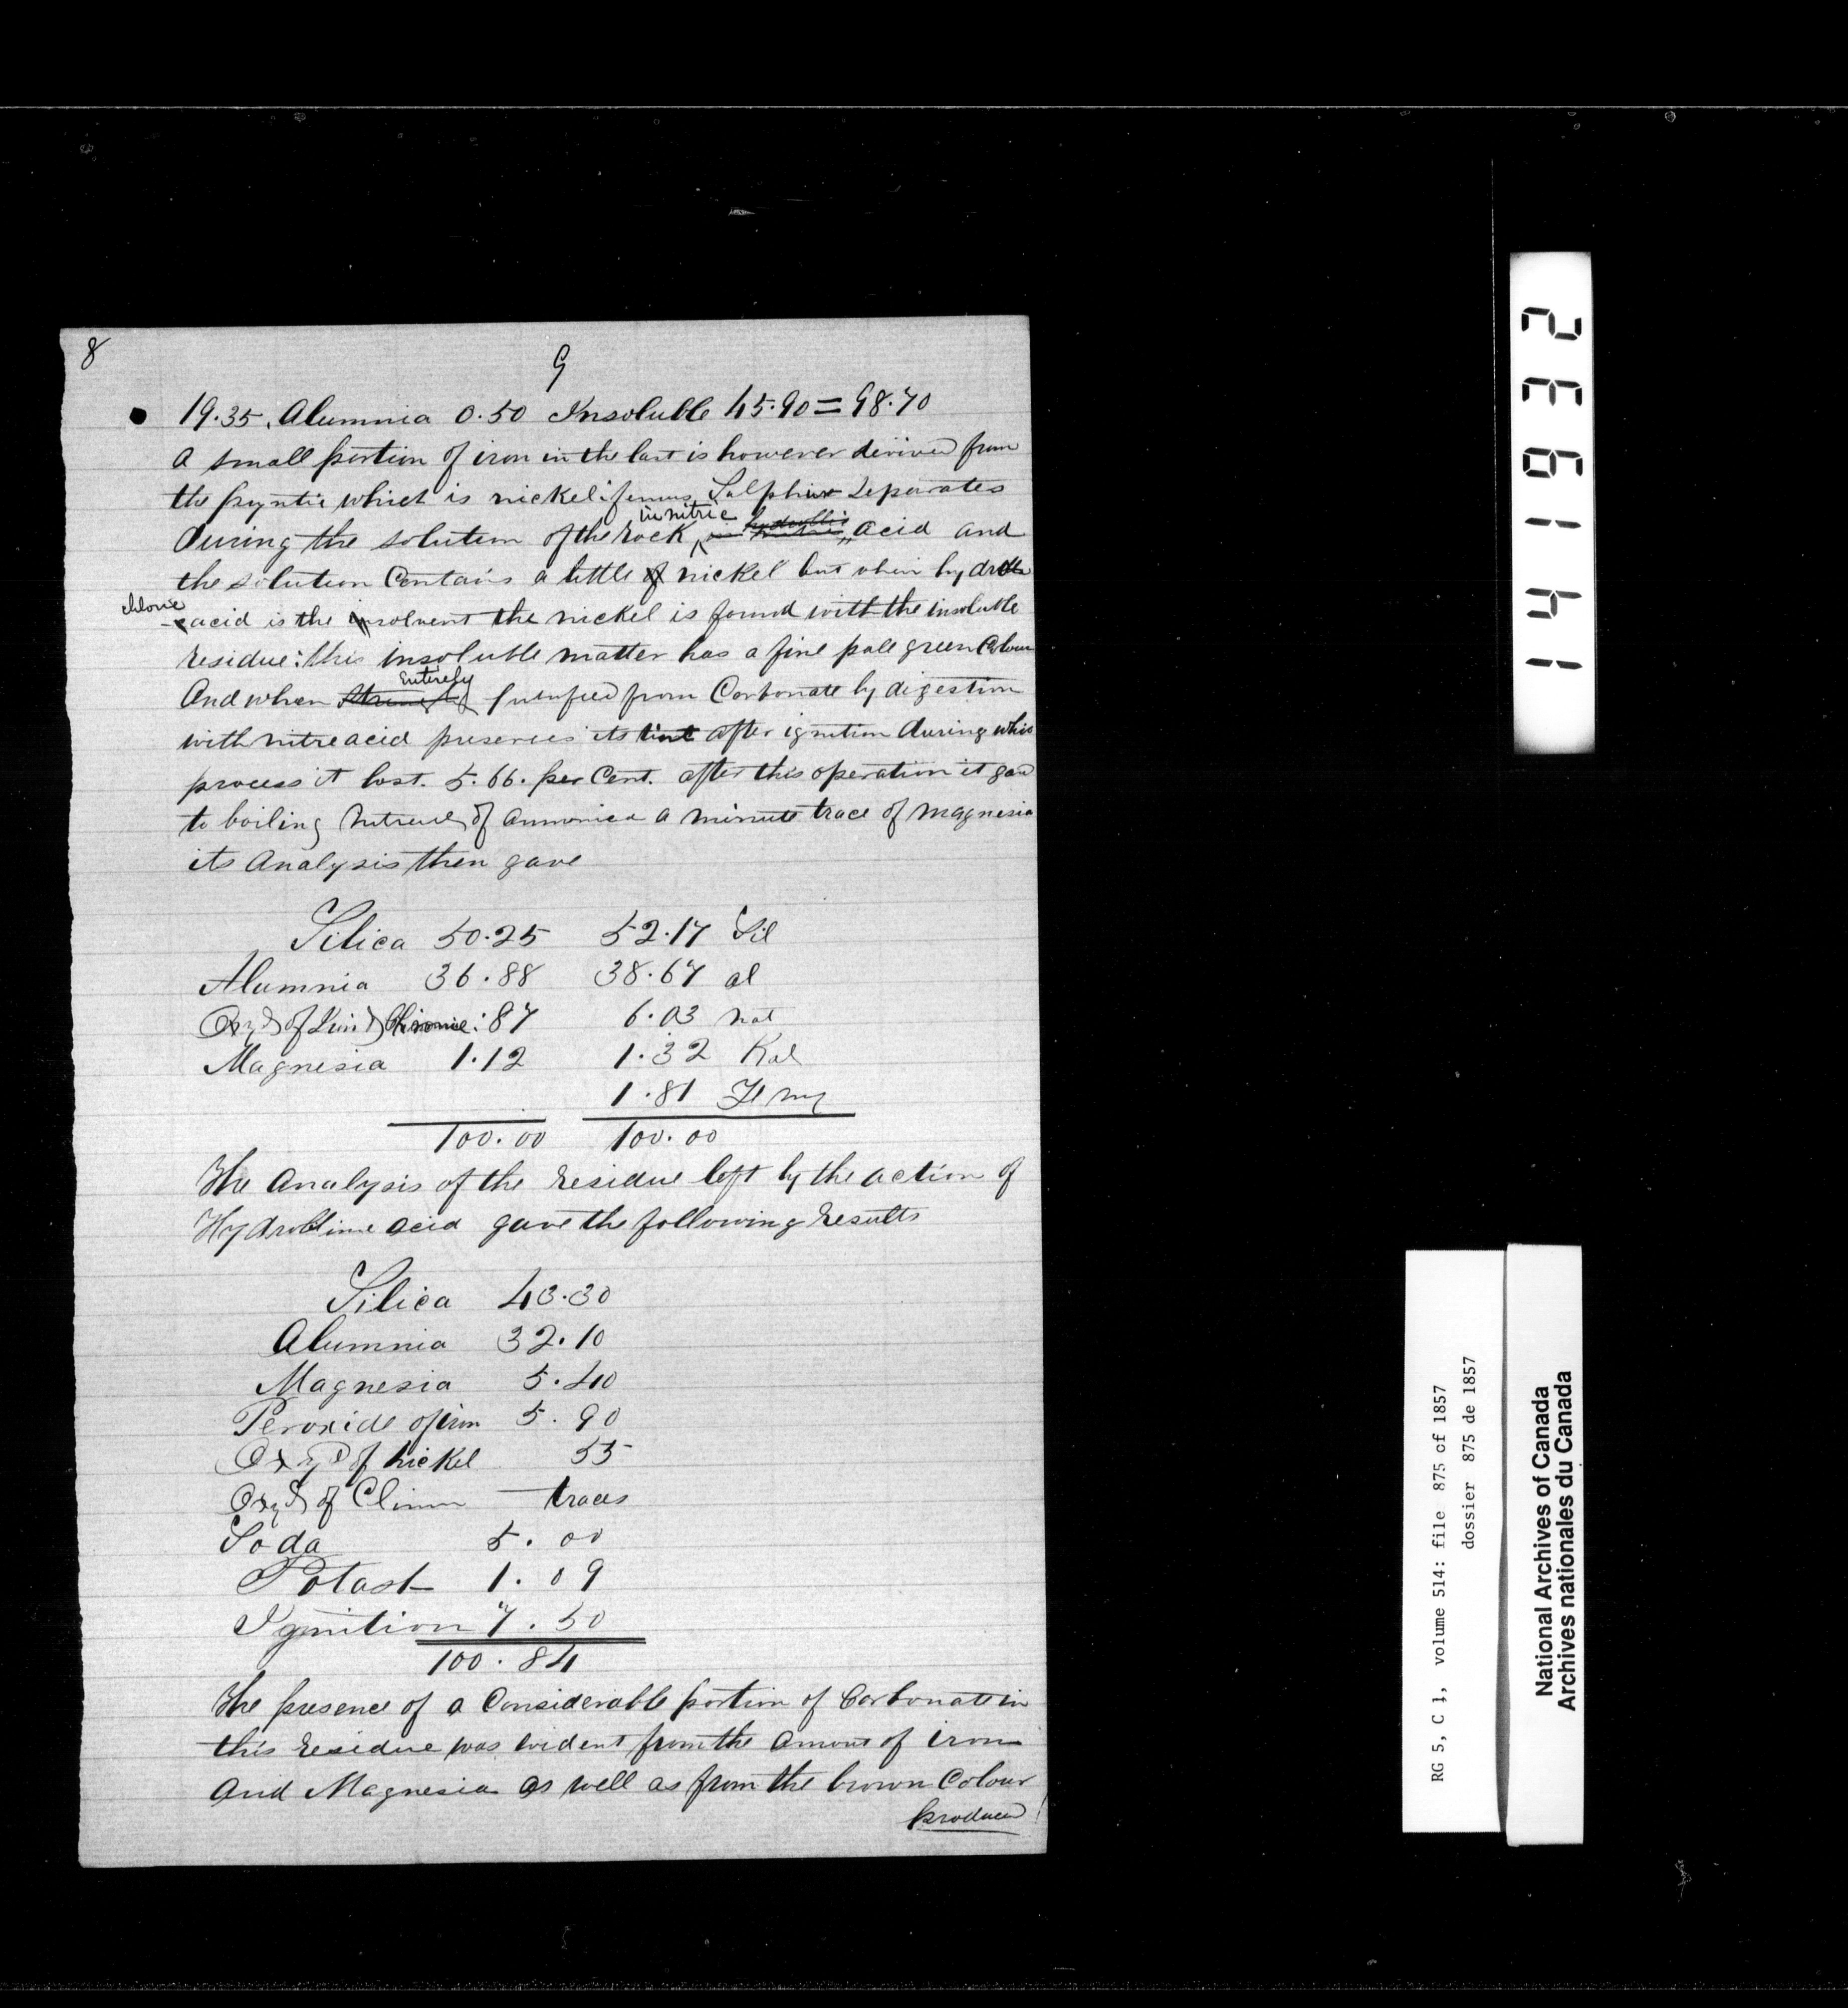 8
9
19.35. Alumnia 0.50 Insoluble 45.90 = 98.70
A small portion of iron in the last is however derived from
the pyntic which is nickeliferous. Sulphur separates
in nitric
During the solution of the rock acid and
the solution Contains a little of nickel but when hydro
chloric
acid is the insolvent the nickel is found with the insoluble
residue: this insoluble matter has a fine pale green Colour
Entirely
And when purufied from Carbonate by digestion
with nitre acid preserves its tint after ignition during whic
process it lost. 5.66. per Cent. after this operation it gave
to boiling of ammonica a minute trace of magnesia
its Analysis then gave
Silica 50.25 52.17 Sil
Alumnia 36.88 38.67 al
Oxyd of & Chrome : 87 6.03 nat
Magnesia 1.12 1.32 Kal
1.81 Fl mg
100.00 100.00
The Analysis of the residue left by the action of
acid gave the following results
Silica 43.30
Alumnia 32.10
Magnesia 5.40
Peroxide of iron 5.90
Oxyd of nickel 55
Oxyd of traces
Soda 5.00
Potash 1.09
Ignition 7.50
100.84
The presence of a Considerable portion of Carbonate in
this residue was evident from the amount of iron
And Magnesia as well as from the brown Colour
produced
14 1932
RG 5, C 1, volume 514: file 875 of 1857
dossier 875 de 1857
National Archives of Canada
Archives nationales du Canada